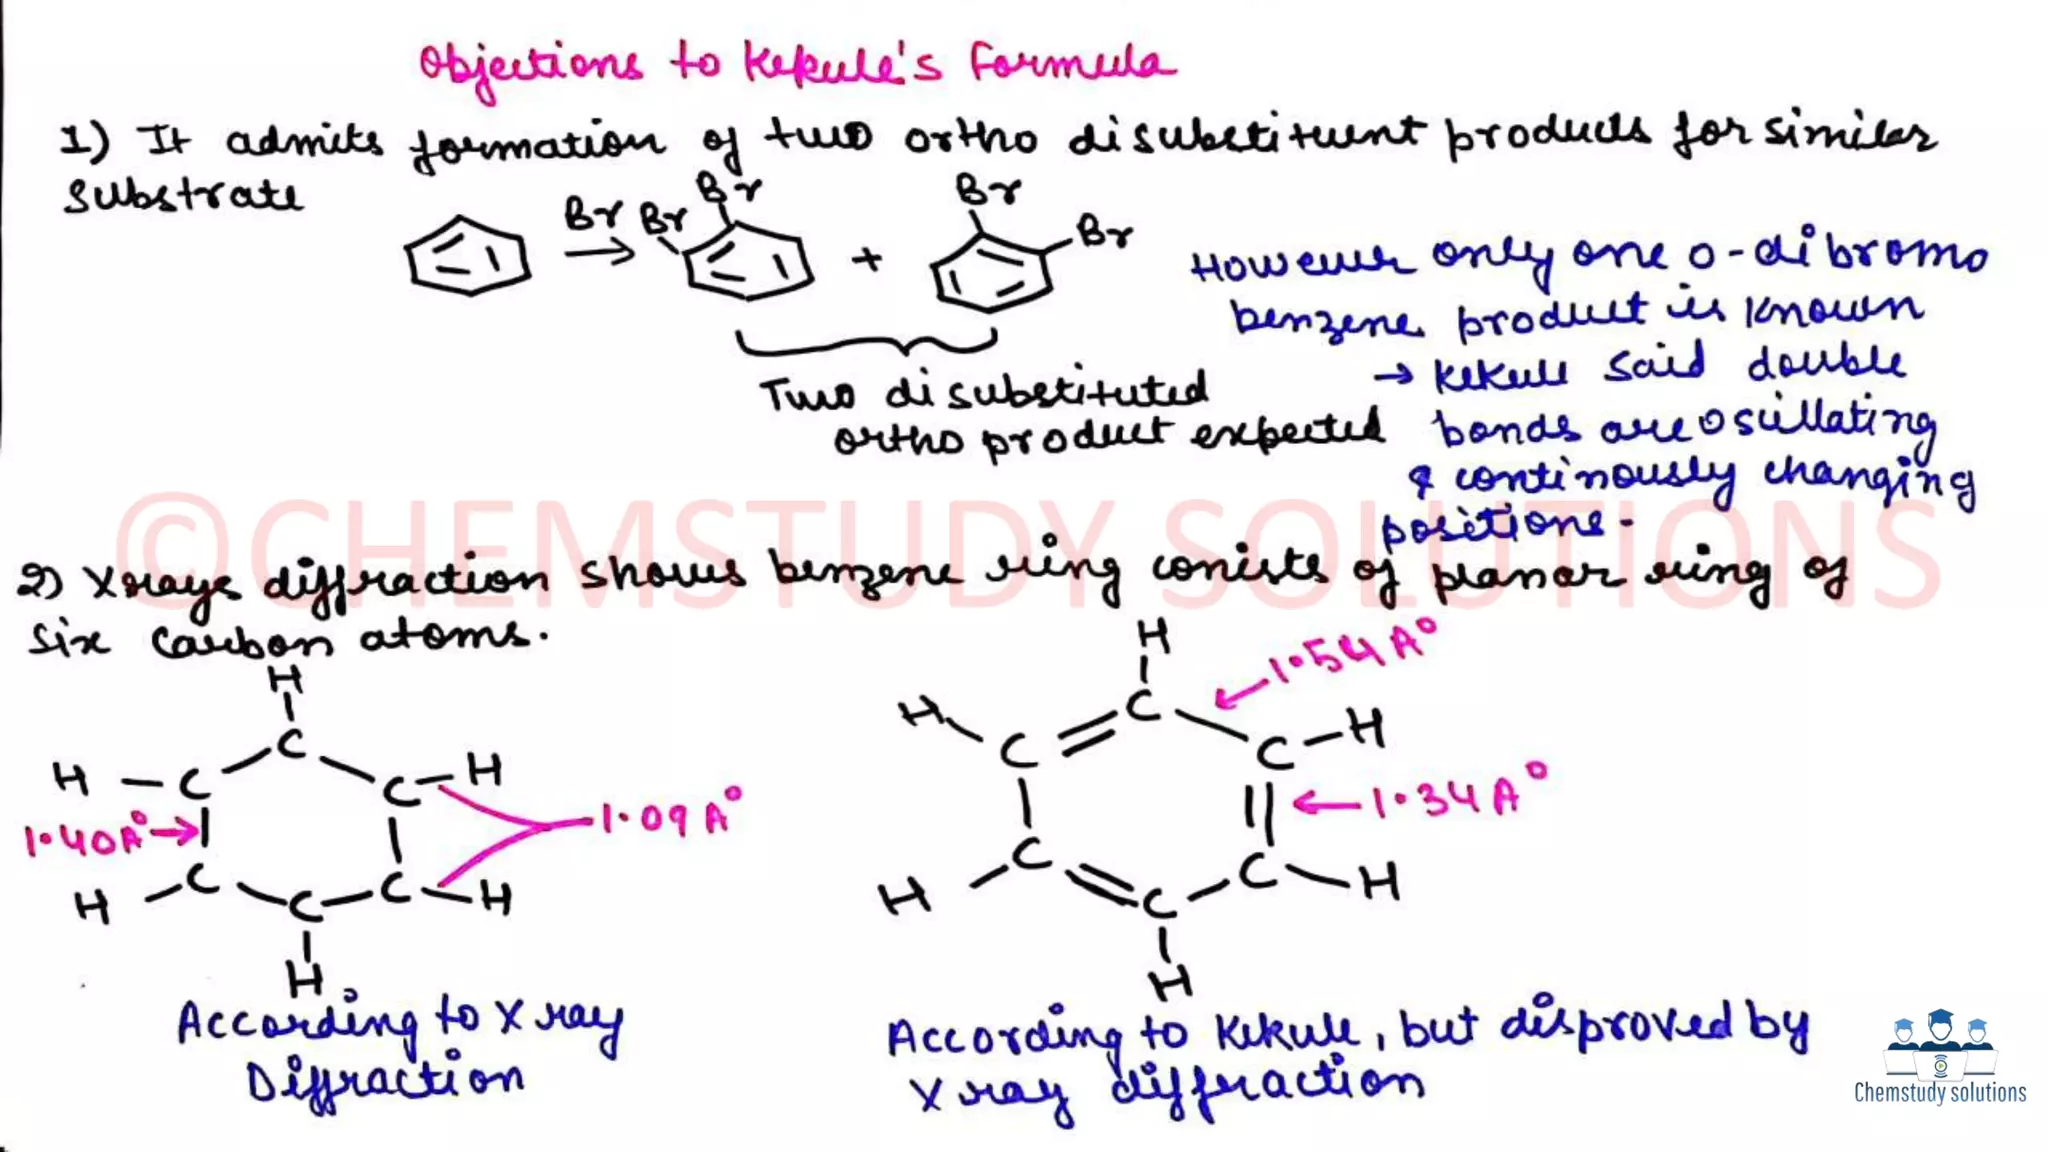 Objections to Kekule's Formula
1) It admits formation of two ortho disubstituent products for similar
substrate
Br
Br
Br
Br
Br
→
+
However only one o-dibromo
benzene product is known
Two disubstituted
ortho product expected
→ Kekule said double
bonds are oscillating
& continously changing
positions.
©CHEMSTUDY SOLUTIONS
2) X rays diffraction shows benzene ring conists of planar ring of
six carbon atoms.
H
C
H - C
C - H
1.40A° →
1.09A°
H - C
C - H
C
H
According to X ray
Diffraction
H
C
← 1.54A°
H
C
C - H
← 1.34A°
H
C
C
H
C
H
According to Kekule, but disproved by
X ray diffraction
Chemstudy solutions